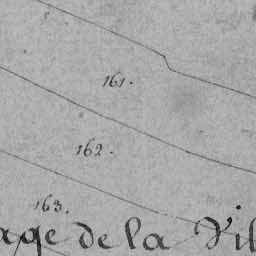 161.
162.
163.
age de la Vil